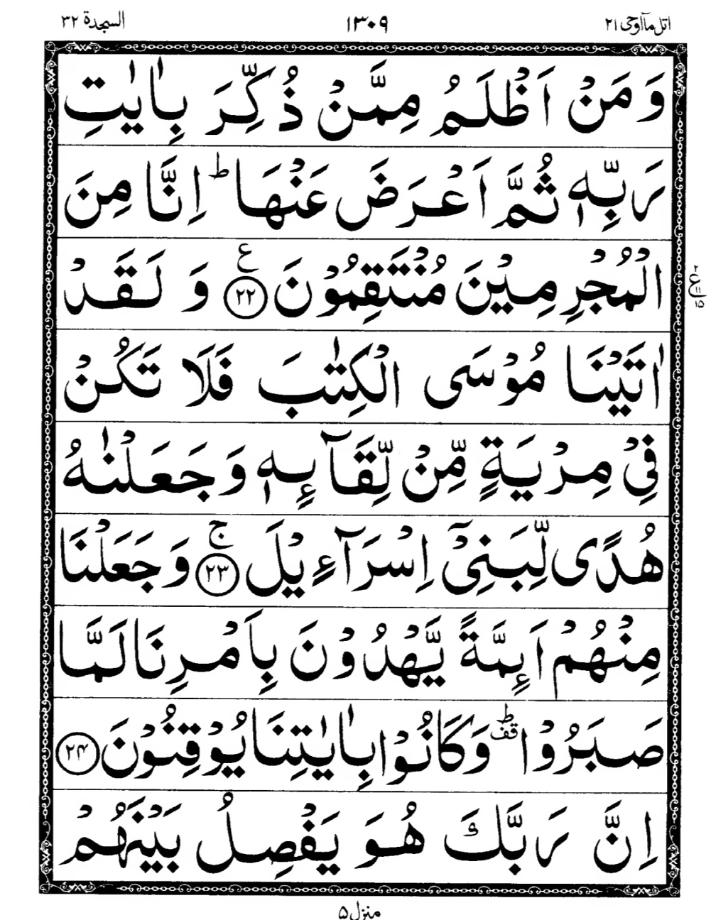 اتل مآاوحی ۲۱ ۱۳۰۹ السجدة ۳۲
وَ مَنْ اَظْلَمُ مِمَّنْ ذُكِّرَ بِاٰيٰتِ
رَبِّهٖ ثُمَّ اَعْرَضَ عَنْهَا ؕ اِنَّا مِنَ
الْمُجْرِمِيْنَ مُنْتَقِمُوْنَ ﴿۲۲﴾ ع وَ لَقَدْ
۲ ع ۱۱ ۱۵
اٰتَيْنَا مُوْسَى الْكِتٰبَ فَلَا تَكُنْ
فِيْ مِرْيَةٍ مِّنْ لِّقَآئِهٖ وَ جَعَلْنٰهُ
هُدًى لِّبَنِيْۤ اِسْرَآءِيْلَ ﴿۲۳﴾ ۚ وَ جَعَلْنَا
مِنْهُمْ اَئِمَّةً يَّهْدُوْنَ بِاَمْرِنَا لَمَّا
صَبَرُوْا ؕ قف وَ كَانُوْا بِاٰيٰتِنَا يُوْقِنُوْنَ ﴿۲۴﴾
اِنَّ رَبَّكَ هُوَ يَفْصِلُ بَيْنَهُمْ
منزل ۵